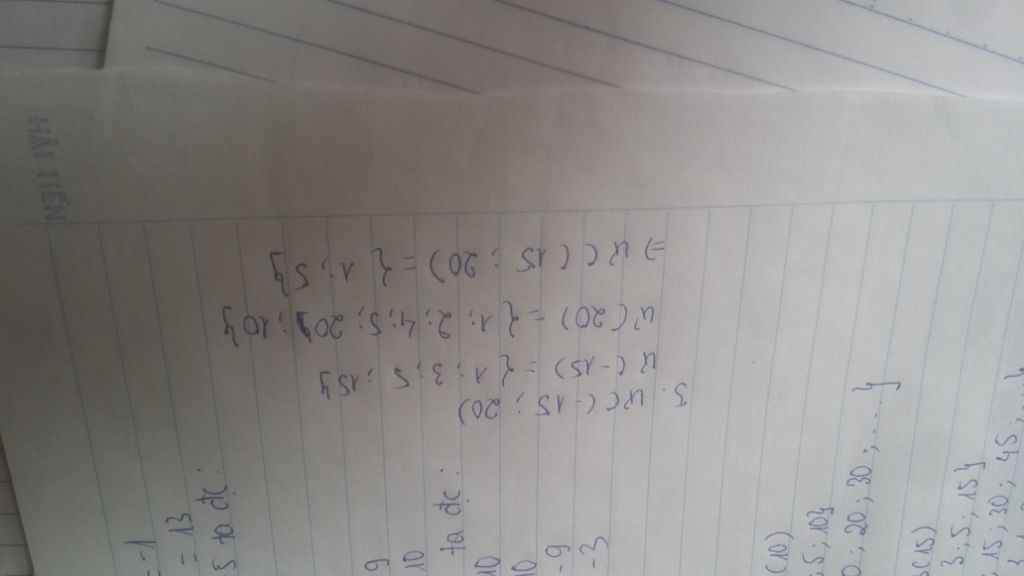 HẢI TIẾN
5. ƯC(-15; 20)
Ư(-15) = { 1; 3; 5; 15}
Ư(20) = { 1; 2; 4; 5; 20; 10}
=) ƯC( 15; 20) = { 1; 5}
= -1
= 13
5 ta đc:
9
10
ta đc:
10
10
-9
-3
(10)
; 5; 10}
0; 20; 30; ....}
(15)
3; 5; 15}
; 15; 30; 45; ...}